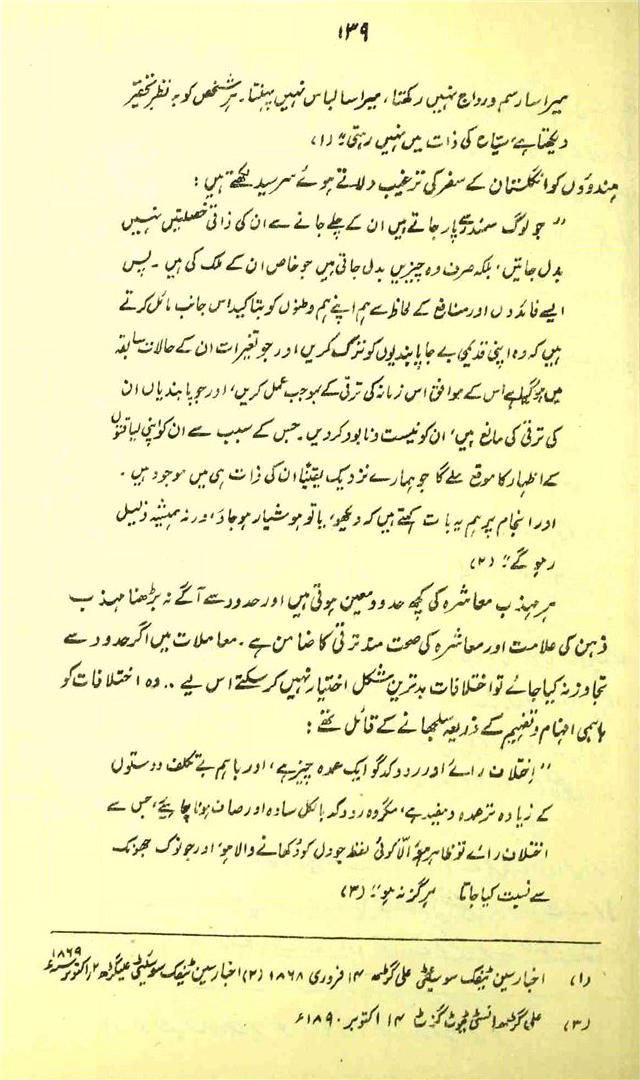 ۱۳۹
میرا سا رسم و رواج نہیں رکھتا، میرا سا لباس نہیں پہنتا۔ ہر شخص کو بہ نظر تحقیر
دیکھتا ہے، سیّاح کی ذات میں نہیں رہتی" (۱)
ہندوؤں کو انگلستان کے سفر کی ترغیب دلاتے ہوئے سرسید لکھتے ہیں:
"جو لوگ سمندر سے پار جاتے ہیں ان کے چلے جانے سے ان کی ذاتی خصلتیں نہیں
بدل جاتیں، بلکہ صرف وہ چیزیں بدل جاتی ہیں جو خاص ان کے ملک کی ہیں۔ پس
ایسے فائدوں اور منافع کے لحاظ سے ہم اپنے ہم وطنوں کو بتاکید اس جانب مائل کرتے
ہیں کہ وہ اپنی قدیمی بے جا پابندیوں کو ترک کریں اور جو تغیرات ان کے حالات سابقہ
میں ہوگیا ہے اس کے موافق اس زمانہ کی ترقی کے بموجب عمل کریں، اور جو پابندیاں ان
کی ترقی کی مانع ہیں، ان کو نیست و نابود کر دیں۔ جس کے سبب سے ان کو اپنی لیاقتوں
کے اظہار کا موقع ملے گا جو ہمارے نزدیک یقیناً ان کی ذات ہی میں موجود ہیں۔
اور انجام پر ہم یہ بات کہتے ہیں کہ دیکھو، یا تو ہوشیار ہو جاؤ، ورنہ ہمیشہ ذلیل
رہو گے" (۲)
ہر مہذب معاشرہ کی کچھ حدود معین ہوتی ہیں اور حدود سے آگے نہ بڑھنا مہذب
ذہن کی علامت اور معاشرہ کی صحت مند ترقی کا ضامن ہے۔ معاملات میں اگر حدود سے
تجاوز نہ کیا جائے تو اختلافات بدترین شکل اختیار نہیں کر سکتے اس لیے .. وہ اختلافات کو
باہمی افہام و تفہیم کے ذریعہ سلجھانے کے قائل تھے:
"اختلاف رائے اور ردو کد گو ایک عمدہ چیز ہے، اور باہم بے تکلف دوستوں
کے زیادہ تر عمدہ و مفید ہے، مگر وہ ردو کد بالکل سادہ اور صاف ہونا چاہیئے، جس سے
اختلاف رائے تو ظاہر ہو، الّا کوئی لفظ جو دل کو دُکھانے والا ہو، اور جو نوک جھونک
سے نسبت کیا جاتا ہرگز نہ ہو" (۳)
(۱) اخبار سین ٹیفک سوسیٹی علی گڑھ ۱۴ فروری ۱۸۶۸ (۲) اخبار سین ٹیفک سوسیٹی علیگڑھ ۲ اکتوبر ۱۸۶۹ء
(۳) علی گڑھ انسٹی ٹیوٹ گزٹ ۱۴ اکتوبر ۱۸۹۰ء